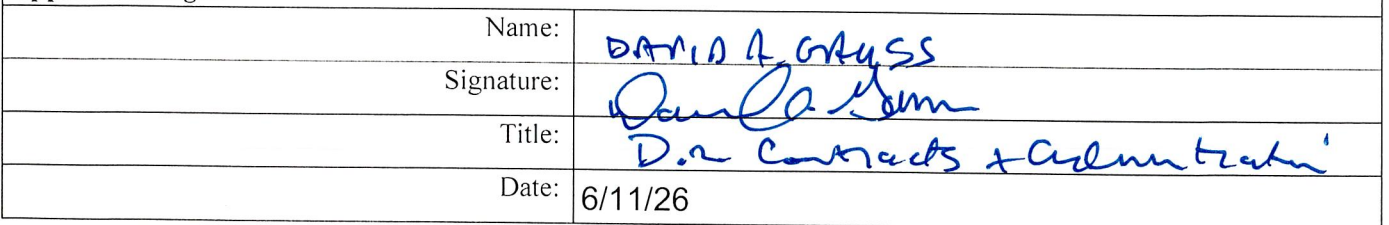 Name: DAVID A. GAUSS
Signature:
Title: Dir Contracts + Administration
Date: 6/11/26